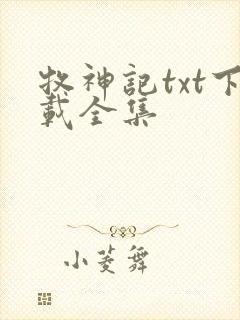 牧神記txt下
載全集
小菱舞